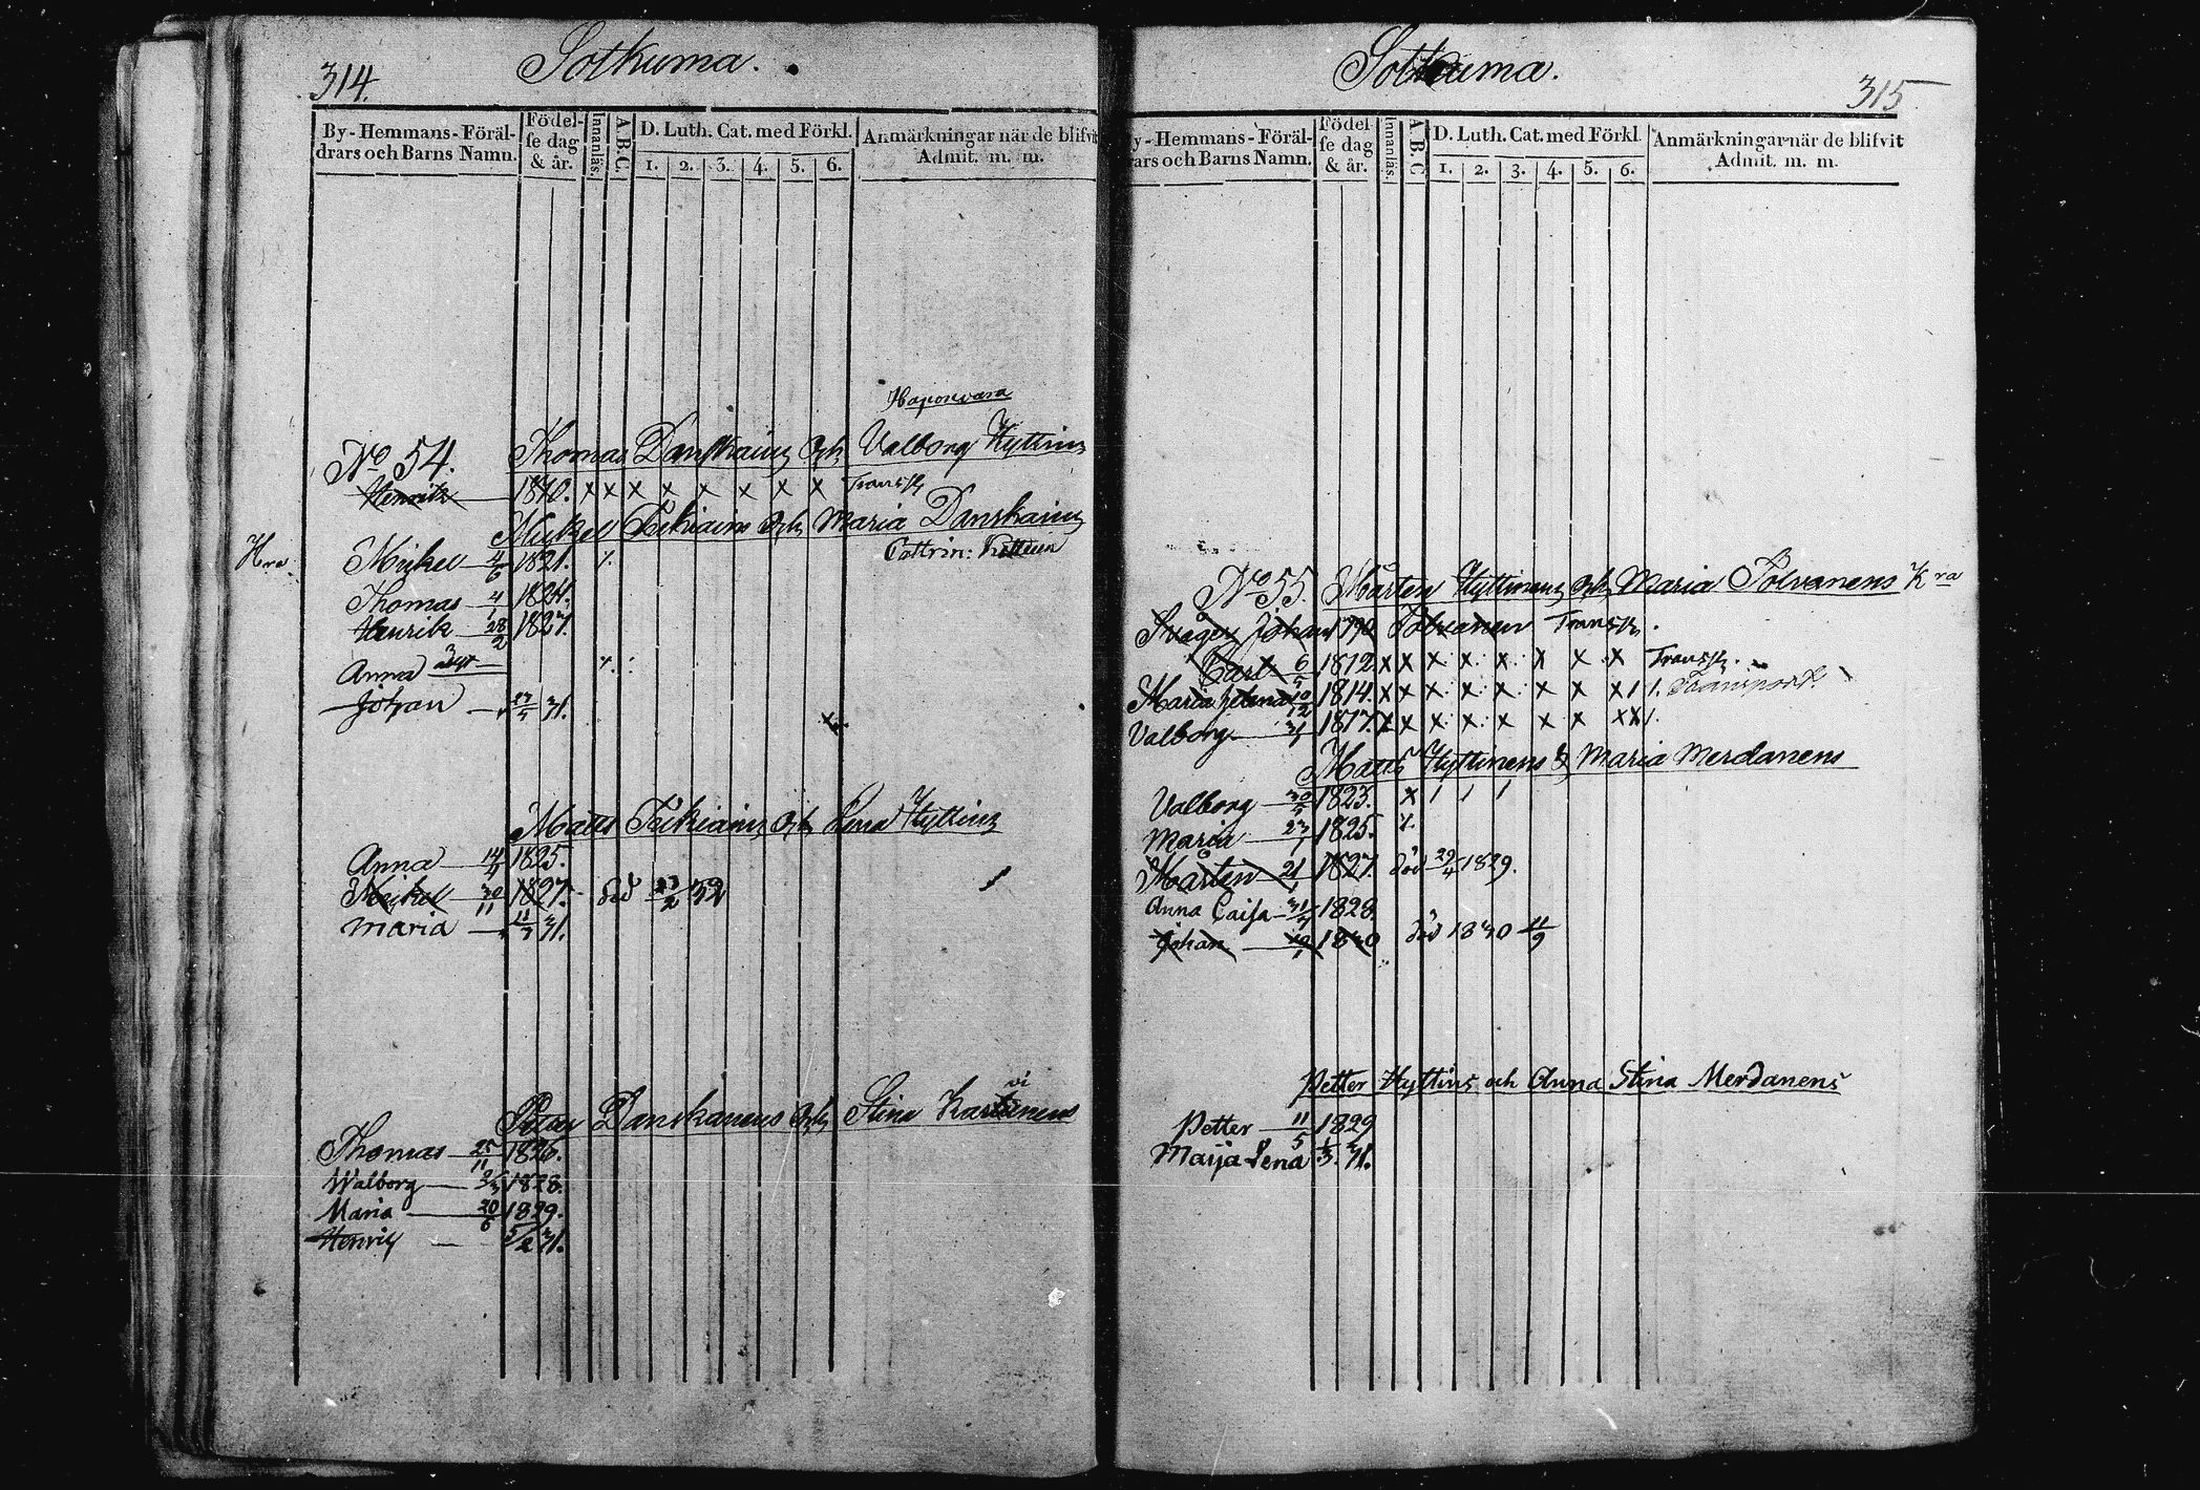 314.
Sotkuma.
By-Hemmans-Föräl-
drars och Barns Namn.
Födel-
se dag
& år.
Innanläs.
A.B.C.
D. Luth. Cat. med Förkl.
1. 2. 3. 4. 5. 6.
Anmärkningar när de blifvit
Admit. m. m.
Haponvara
No 54. Thomas Danskain och Valborg Hyttin
Henrik 1810. x x x x x x x x Transp
Mickel och Maria Danskain
Mickel 4/6 1821.
Cattrin:
Thomas 4/1 1824.
Henrik 28/2 1827.
Anna
Johan 31.
Matts och Lena Hyttin
Anna 14/4 1825.
Michel 30/11 1827. död 23/2 32
Maria 11/7 31.
Petter Danskanens och Stina
Thomas 25/11 1826.
Walborg 1828.
Maria 20/6 1829.
Henric 5/2 31.
Sotkuma.
315
y-Hemmans-Föräl-
rars och Barns Namn.
Födel-
se dag
& år.
Innanläs.
A.B.C
D. Luth. Cat. med Förkl
1. 2. 3. 4. 5. 6.
Anmärkningar när de blifvit
Admit. m. m.
No 55. Mårten Hyttinens och Maria Tolvanens
Svåger Johan 1790 Tolvanen Transp.
Carl 6/5 1812 x x x x x x x x Transp.
Maria Helena 10/12 1814. x x x x x x x x 1 1. Transport.
Valborg 1817. x x x x x x x x 1.
Matts Hyttinens & Maria Merdanens
Valborg 1823. x 1 1 1
Maria 1825.
Mårten 1827. död 29/4 1829.
Anna Caisa 1828.
Johan 1830 död 1830 11/9
Petter Hyttins och Anna Stina Merdanens
Petter 11/5 1829
Maija Lena 31.